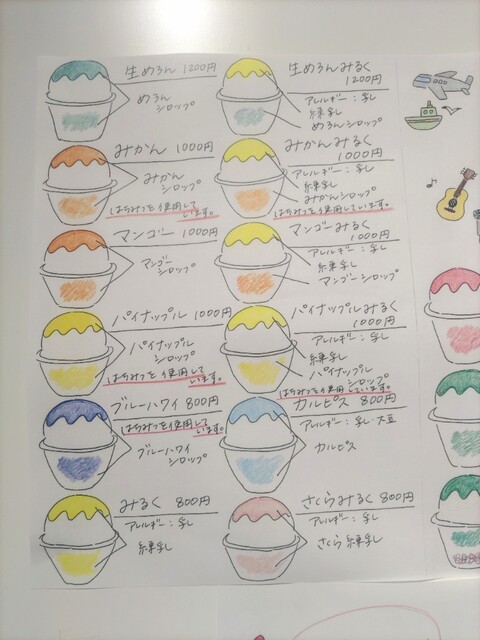 生めろん 1200円
めろん
シロップ
みかん 1000円
みかん
シロップ
はちみつを使用して
います。
マンゴー 1000円
マンゴー
シロップ
パイナップル 1000円
パイナップル
シロップ
はちみつを使用して
います。
ブルーハワイ 800円
はちみつを使用して
います。
ブルーハワイ
シロップ
みるく 800円
アレルギー:乳
練乳
生めろんみるく
1200円
アレルギー:乳
練乳
めろんシロップ
みかんみるく
1000円
アレルギー:乳
練乳
みかんシロップ
はちみつを使用しています。
マンゴーみるく
1000円
アレルギー:乳
練乳
マンゴーシロップ
パイナップルみるく
1000円
アレルギー:乳
練乳
パイナップル
シロップ
はちみつを使用しています。
カルピス 800円
アレルギー:乳・大豆
カルピス
さくらみるく 800円
アレルギー:乳
さくら練乳